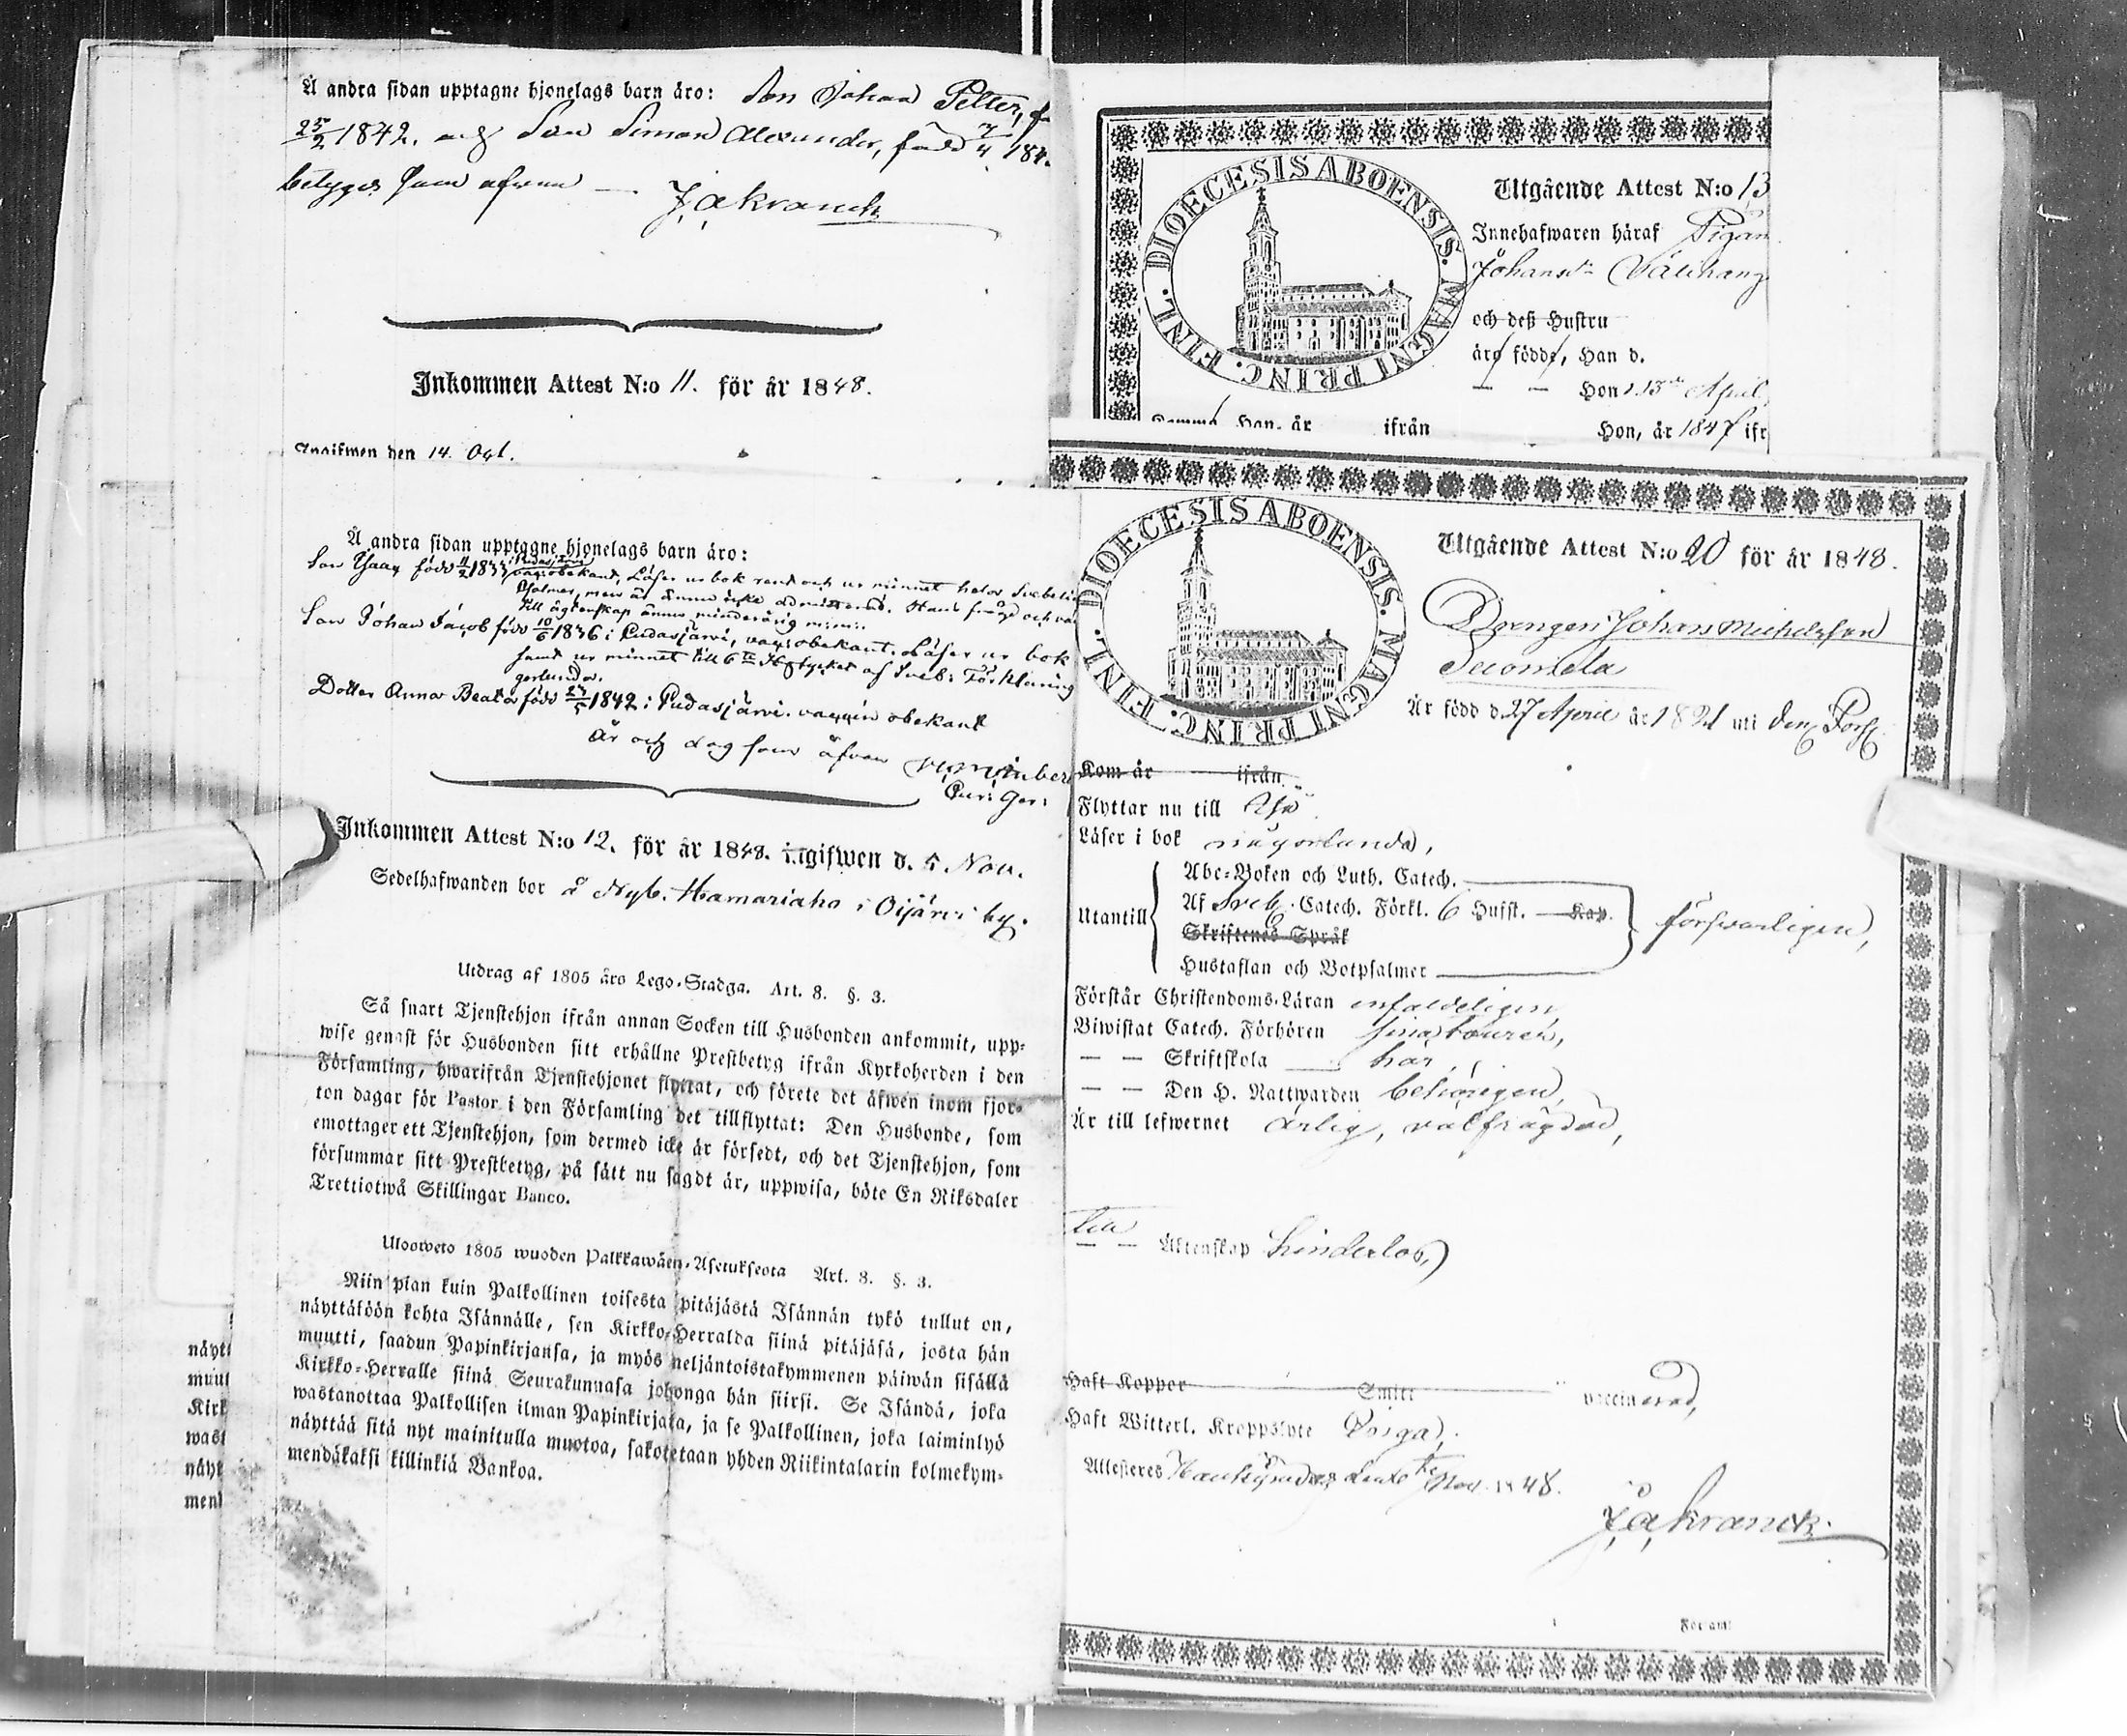 Å andra sidan upptagne hjonelags barn äro: Son Johan Petter,
25/2 1842. och Son Simon Alexander, född
betygas som ofvan — J. A. Kranck
Inkommen Attest N:o 11. för år 1848.
Ingifwen den 14. Oct.
Å andra sidan upptagne hjonelags barn äro:
Son Isaac född 11/2 1833 i Pudasjärvi
vacc: obekant, Läser ur bok rent och ur minnet hela Svebelii
Psalmer, men är ännu icke admitterad. Hans frägd och
till ägtenskap ännu minderårig
Son Johan Jacob född 10/6 1836 i Pudasjärvi, vacc: obekant. Läser ur bok
samt ur minnet till 6te Hufstycket af Sveb: Förklaring
Dotter Anna Beata född 1842 i Pudasjärvi. vaccin obekant
År och dag som äfvan
Inkommen Attest N:o 12. för år 1848. ingifwen d. 5 Nov.
Sedelhafwanden bor å Nyb. Hamariaho i Oijärvi by.
Utdrag af 1805 års Lego-Stadga. Art. 8. §. 3.
Så snart Tjenstehjon ifrån annan Socken till Husbonden ankommit, upp-
wise genast för Husbonden sitt erhållne Prestbetyg ifrån Kyrkoherden i den
Församling, hwarifrån Tjenstehjonet flyttat, och förete det äfwen inom fjor-
ton dagar för Pastor i den Församling det tillflyttat: Den Husbonde, som
emottager ett Tjenstehjon, som dermed icke är försedt, och det Tjenstehjon, som
försummar sitt Prestbetyg, på sätt nu sagdt är, uppwisa, böte En Riksdaler
Trettiotwå Skillingar Banco.
Uloosweto 1805 wuoden Palkkawäen-Asetuksesta Art. 8. §. 3.
Niin plan kuin Palkollinen toisesta pitäjästä Isännän tykö tullut on,
näyttäköön kohta Isännälle, sen Kirkko-Herralda siinä pitäjäsä, josta hän
muutti, saadun Papinkirjansa, ja myös neljäntoistakymmenen päiwän sisällä
Kirkko-Herralle siinä Seurakunnasa johonga hän siirsi. Se Isändä, joka
wastanottaa Palkollisen ilman Papinkirjata, ja se Palkollinen, joka laiminlyö
näyttää sitä nyt mainitulla muotoa, sakotetaan yhden Riikintalarin kolmekym-
mendäkaksi killinkiä Bankoa.
näytt
muut
Kirk
wast
näyt
mend
DIOECESIS ABOENSIS. MAGNI PRINC. FINL.
Utgående Attest N:o 13
Innehafwaren häraf Pigan
och deß Hustru
äro födde, Han d.
— — Hon d. 13de April,
Han, år ifrån Hon, år 1847 ifr
DIOECESIS ABOENSIS. MAGNI PRINC. FINL.
Utgående Attest N:o 20 för år 1848.
Drengen Johan Michelsson
Suomela
Är född d. 27 April år 1821 uti denna Förs.
Kom år ifrån
Flyttar nu till
Läser i bok någorlunda,
Utantill
Abc-Boken och Luth. Catech.
Af Sveb. Catech. Förkl. 6 Hufst. — Kap.
Skriftenes Språk
Hustaflan och Botpsalmer
försvarligen,
Förstår Christendoms-Läran enfaldeligen
Biwistat Catech. Förhören sina tourer,
— — Skriftskola här,
— — Den H. Nattwarden behörigen,
Är till lefwernet ärlig, välfrägdad,
Till
— — Äktenskap hinderlös,
Haft Koppor Smitt vaccinerad,
Haft Witterl. Kroppslyte Inga.
Attesteres Haukipudas den Nov. 1848.
J. A. Kranck.